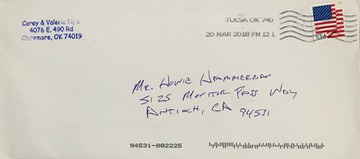 Corey & Valerie
4076 E. 490 Rd
Claremore, OK 74019
TULSA OK 740
20 MAR 2018 PM 12 L
Mr. Howie Hammerman
5125 Pass Way
Antioch, CA
94531
94531-882225